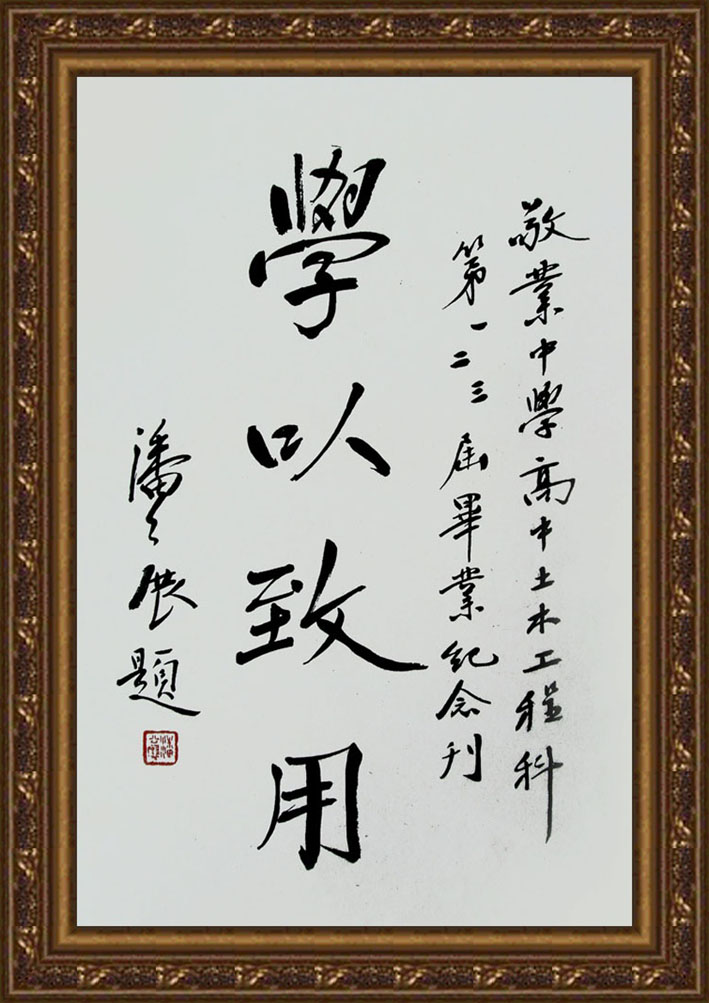 敬業中學高中土木工程科
第一二三屆畢業紀念刊
學以致用
潘公展題